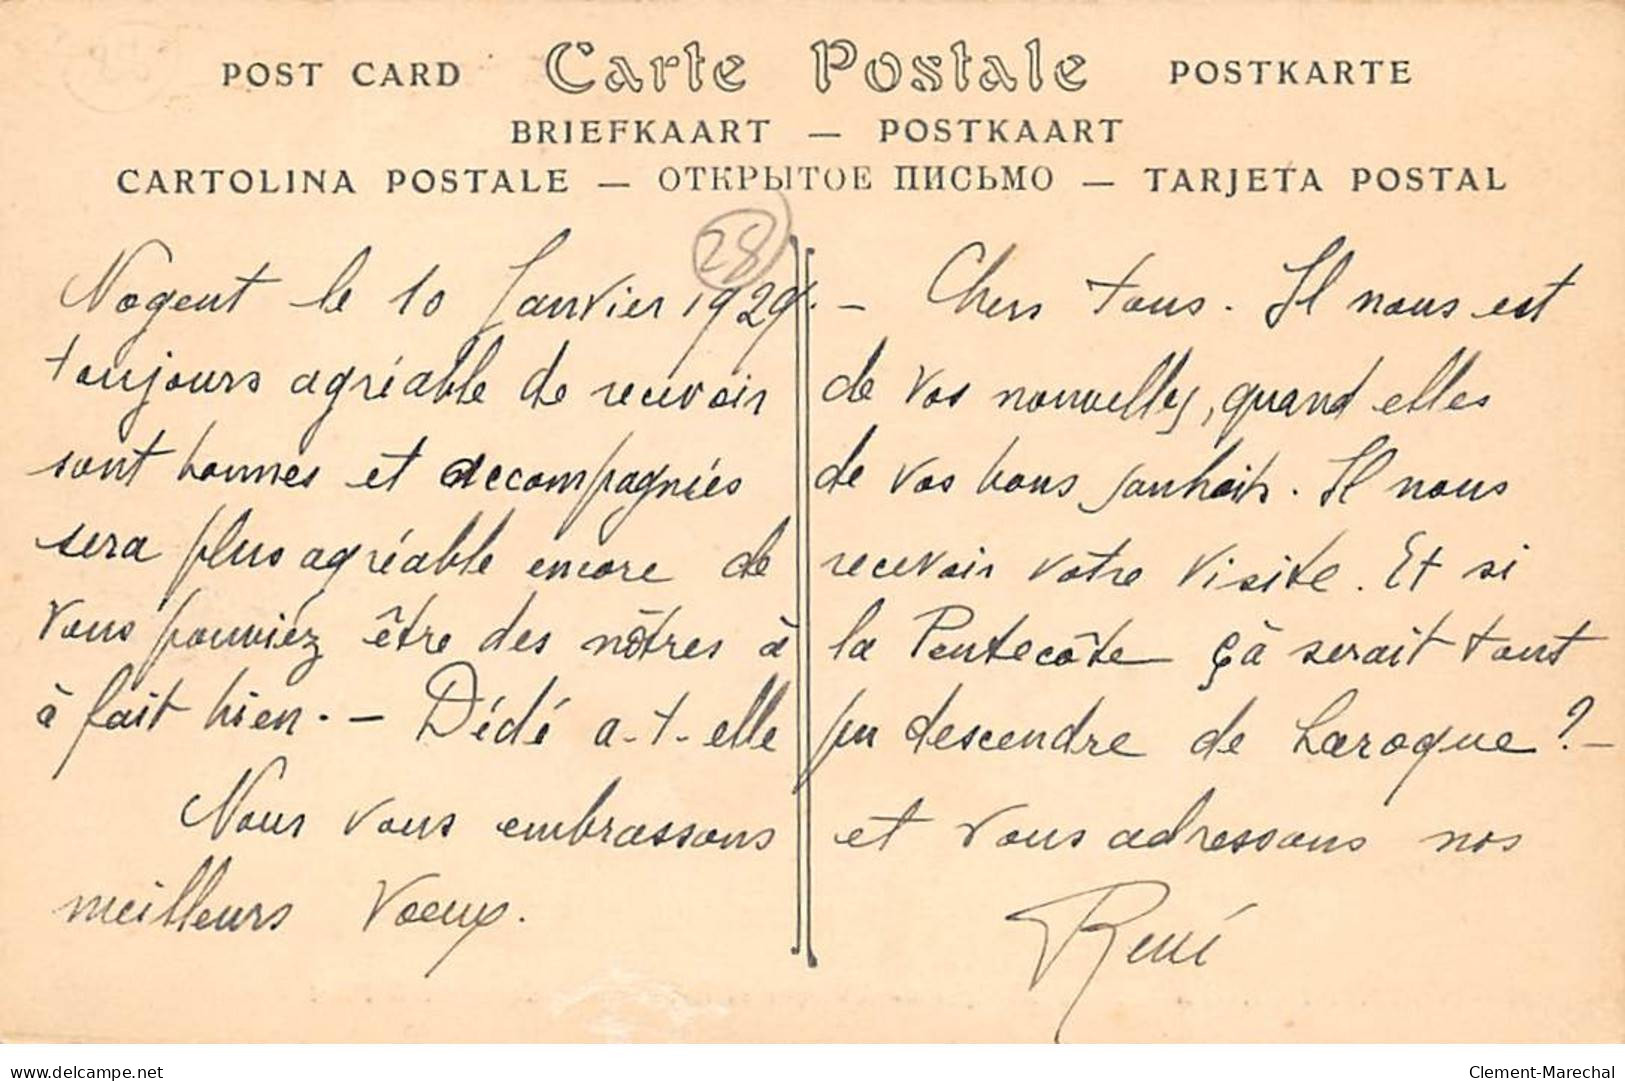 POST CARD Carte Postale POSTKARTE
BRIEFKAART — POSTKAART
CARTOLINA POSTALE — ОТКРЫТОЕ ПИСЬМО — TARJETA POSTAL
28
Nogent le 10 Janvier 1929. — Chers tous. Il nous est
toujours agréable de recevoir de vos nouvelles, quand elles
sont bonnes et accompagnées de vos bons souhaits. Il nous
sera plus agréable encore de recevoir votre visite. Et si
vous pouviez être des nôtres à la Pentecôte çà serait tout
à fait bien. — Dédé a-t-elle pu descendre de Laroque ? —
Nous vous embrassons et vous adressons nos
meilleurs vœux.
René
delcampe.net
Clement-Marechal